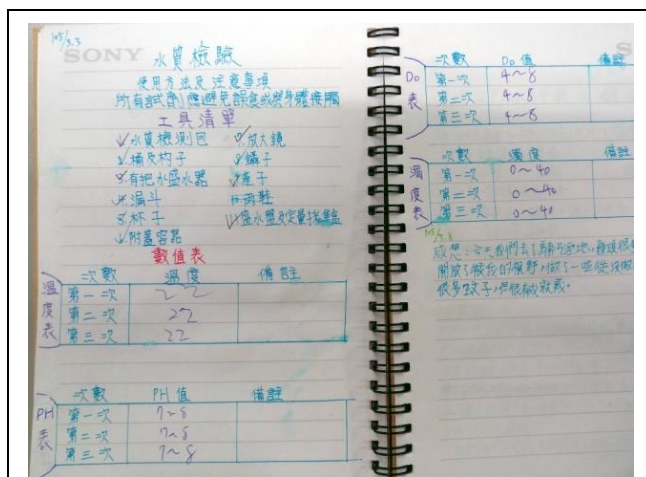 105/3.3
SONY
水質檢驗
使用方法及注意事項
所有試劑應避免誤食或與身體接觸
工具清單
水質檢測包 放大鏡
桶及杓子 鑷子
有把水盛水器 產子
漏斗 雨鞋
杯子 盛水盤及定量
附蓋容器
數值表
溫度表
次數 溫度 備註
第一次 22
第二次 22
第三次 22
PH表
次數 PH值 備註
第一次 7~8
第二次 7~8
第三次 7~8
Do表
次數 Do值 備註
第一次 4~8
第二次 4~8
第三次 4~8
濁度表
次數 濁度 備註
第一次 0~40
第二次 0~40
第三次 0~40
感想:今天我們去了
開放了
很多蚊子,但很